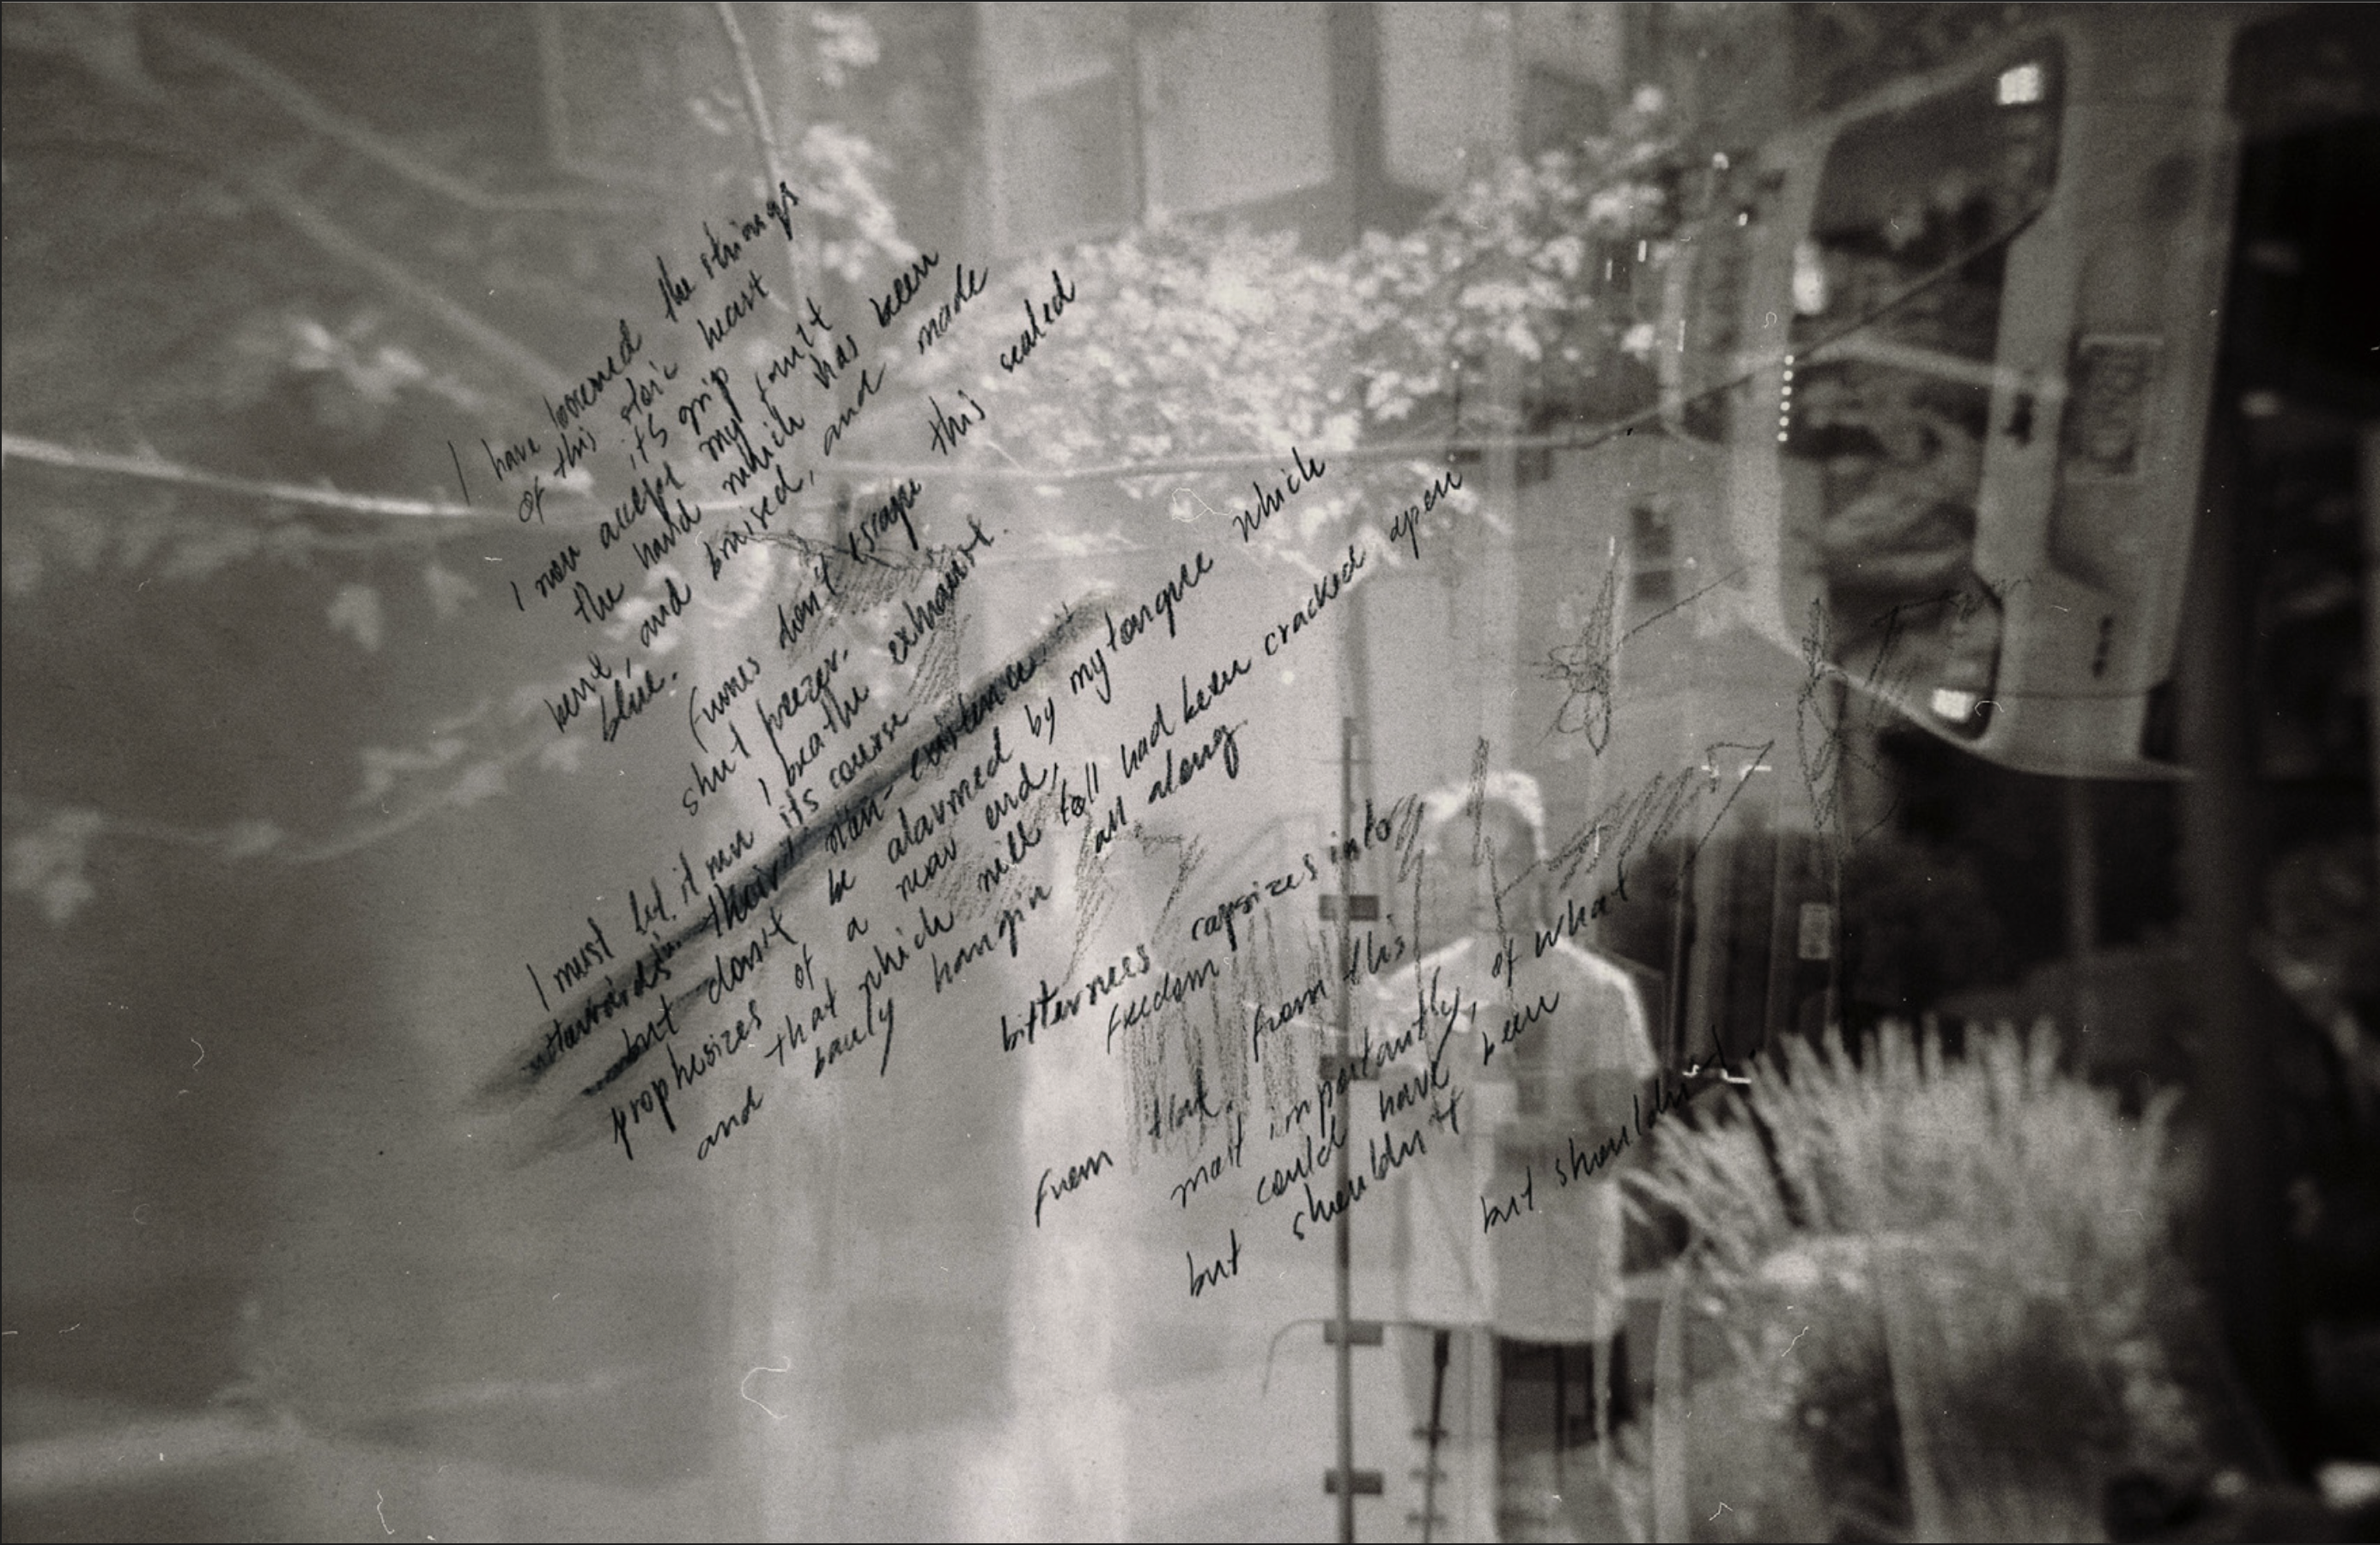 I have loosened the strings
of this stoic heart
its grip
I now accept my fault
the hand which has been
bent, and bruised, and made
blue.
Fumes don't escape this sealed
shut freezer.
I breathe the exhaust.
I must let it run its course
outwards in their non-existence
but don't be alarmed by my tongue which
prophesizes of a near end,
and that which will fall had been cracked open
barely hangin all along
bitterness capsizes into
freedom
from that from this
most importantly, of what
could have been
but shouldn't
but shouldn't.